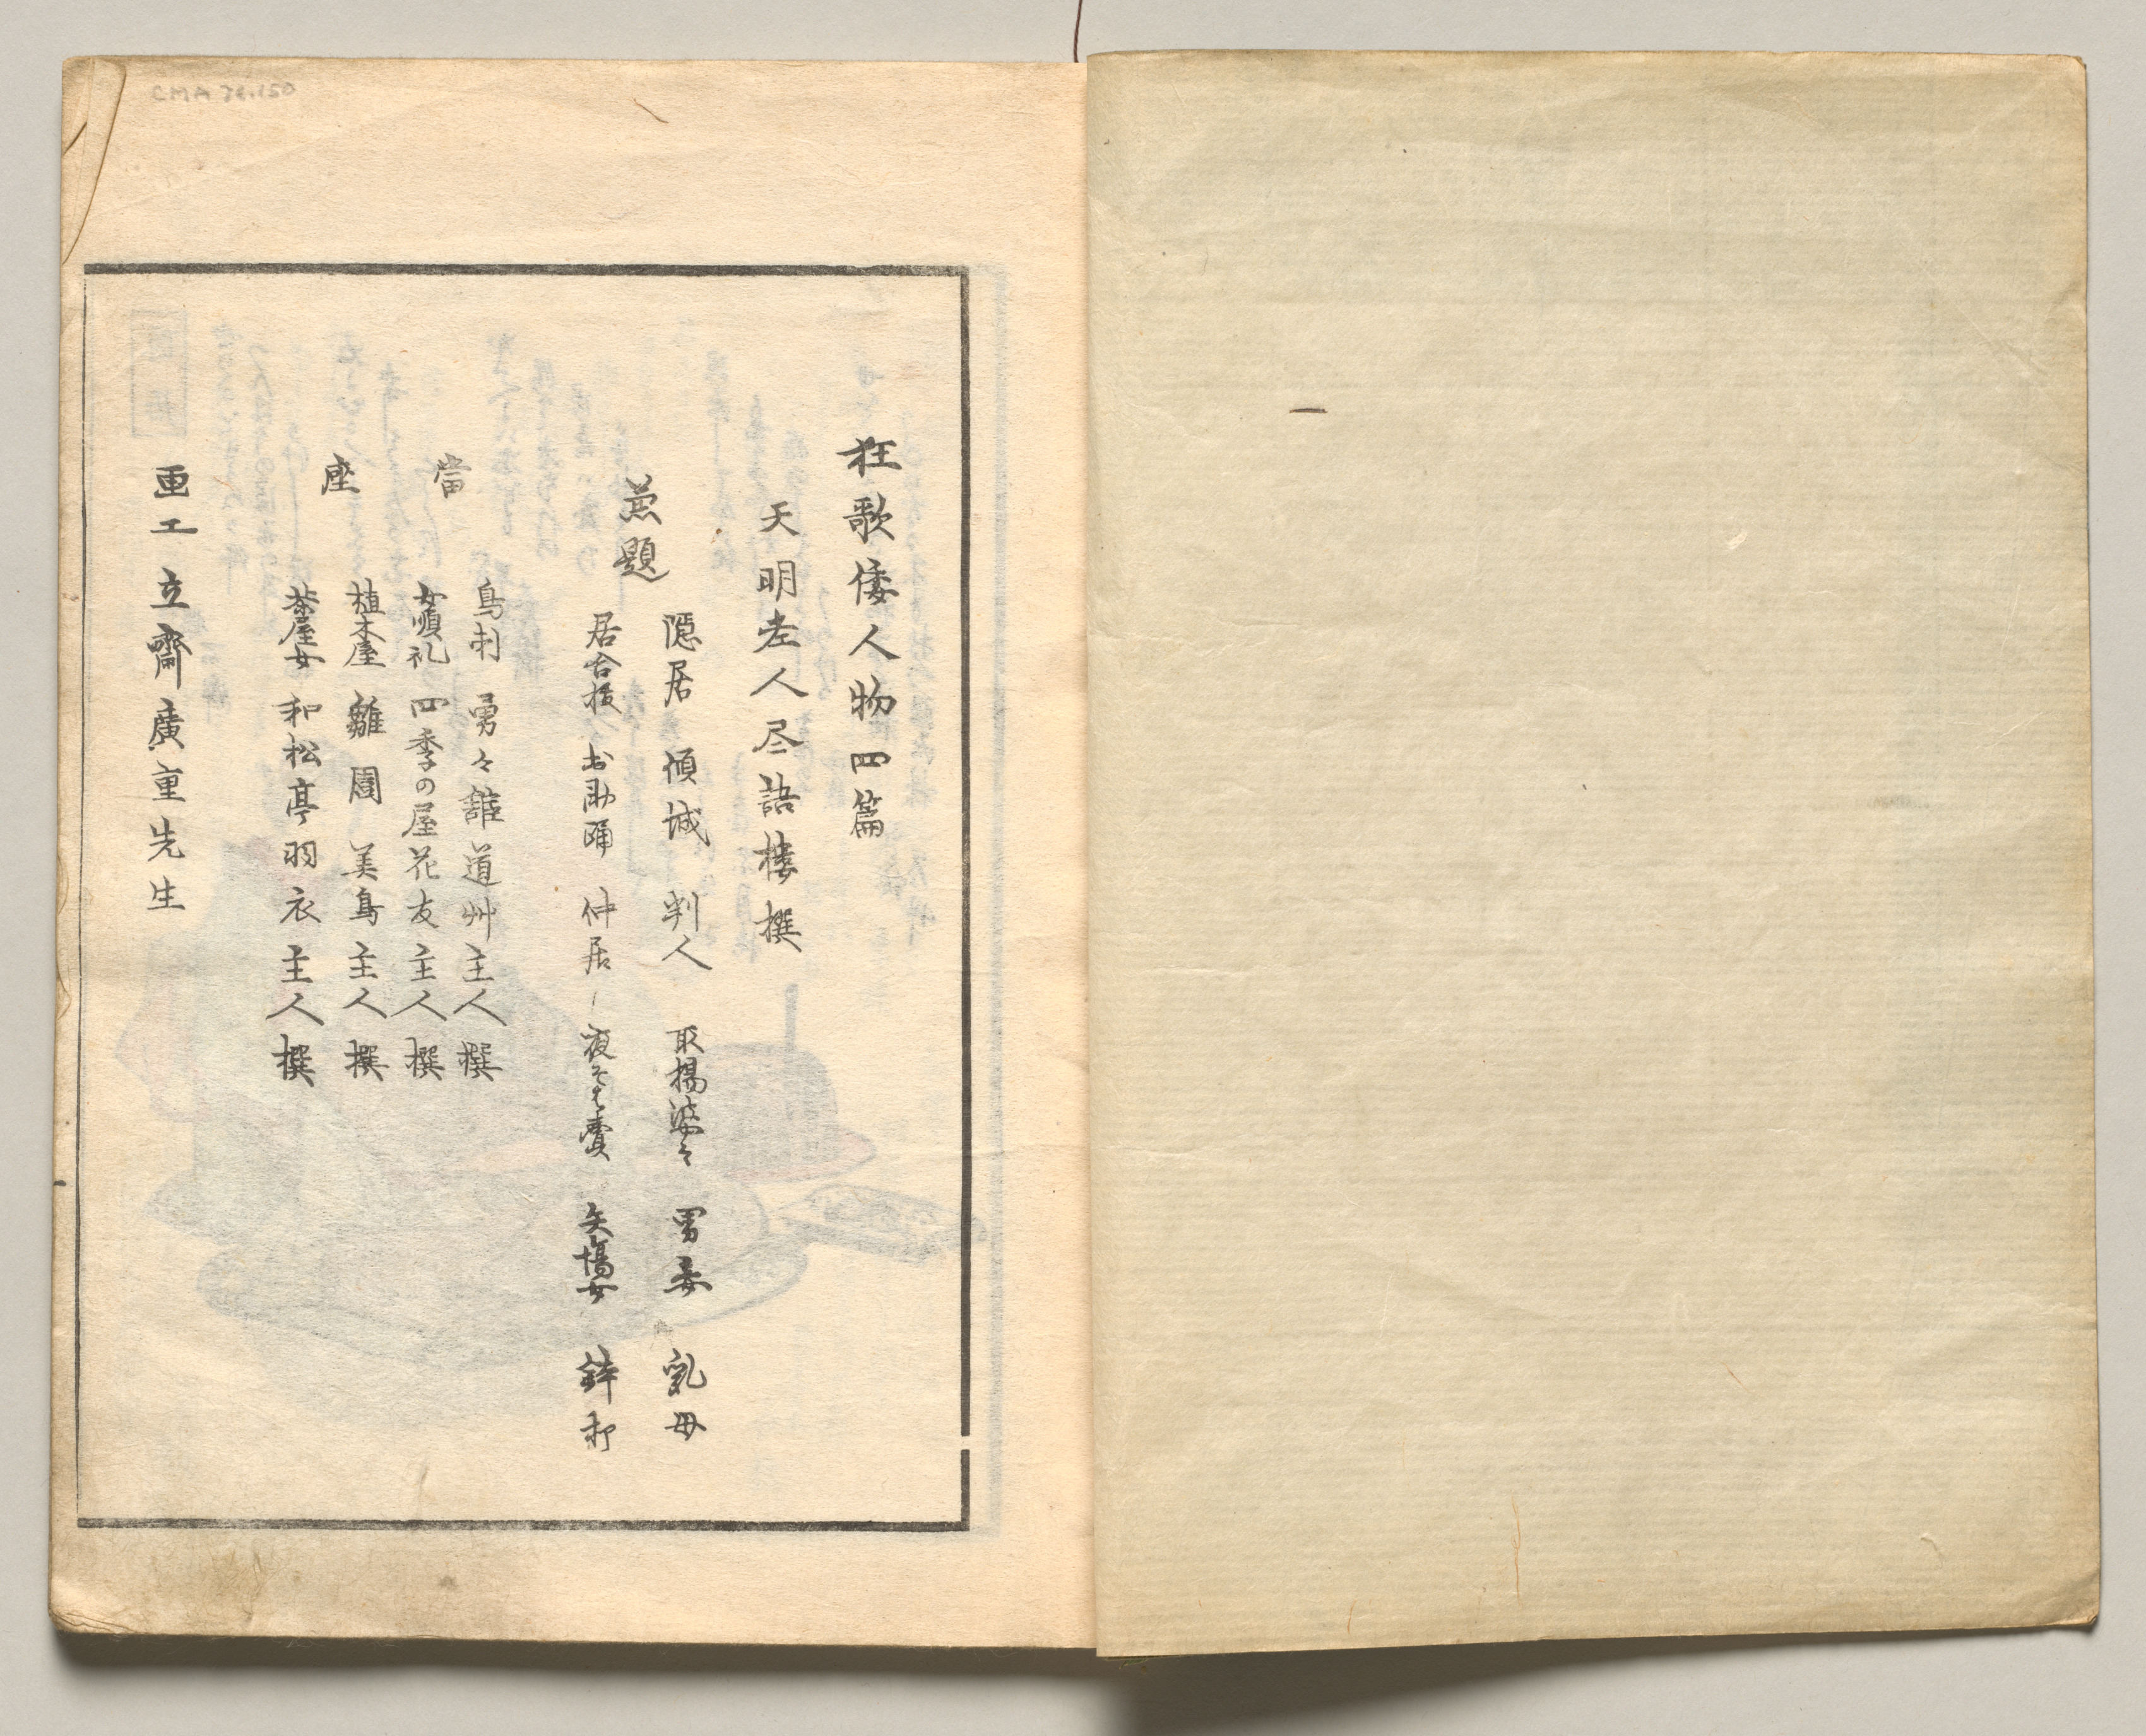 狂歌倭人物四篇
天明老人尽語楼撰
兼題
隠居 傾城 判人 取揚婆々 男妾 乳母
居合抜 お助踊 仲居 夜そば賣 矢場女 鉢叩
當座
鳥刺 勇々館道艸主人撰
女順礼 四季の屋花友主人撰
植木屋 雛園美鳥主人撰
茶屋女 和松亭羽衣主人撰
画工 立齋廣重先生
CMA